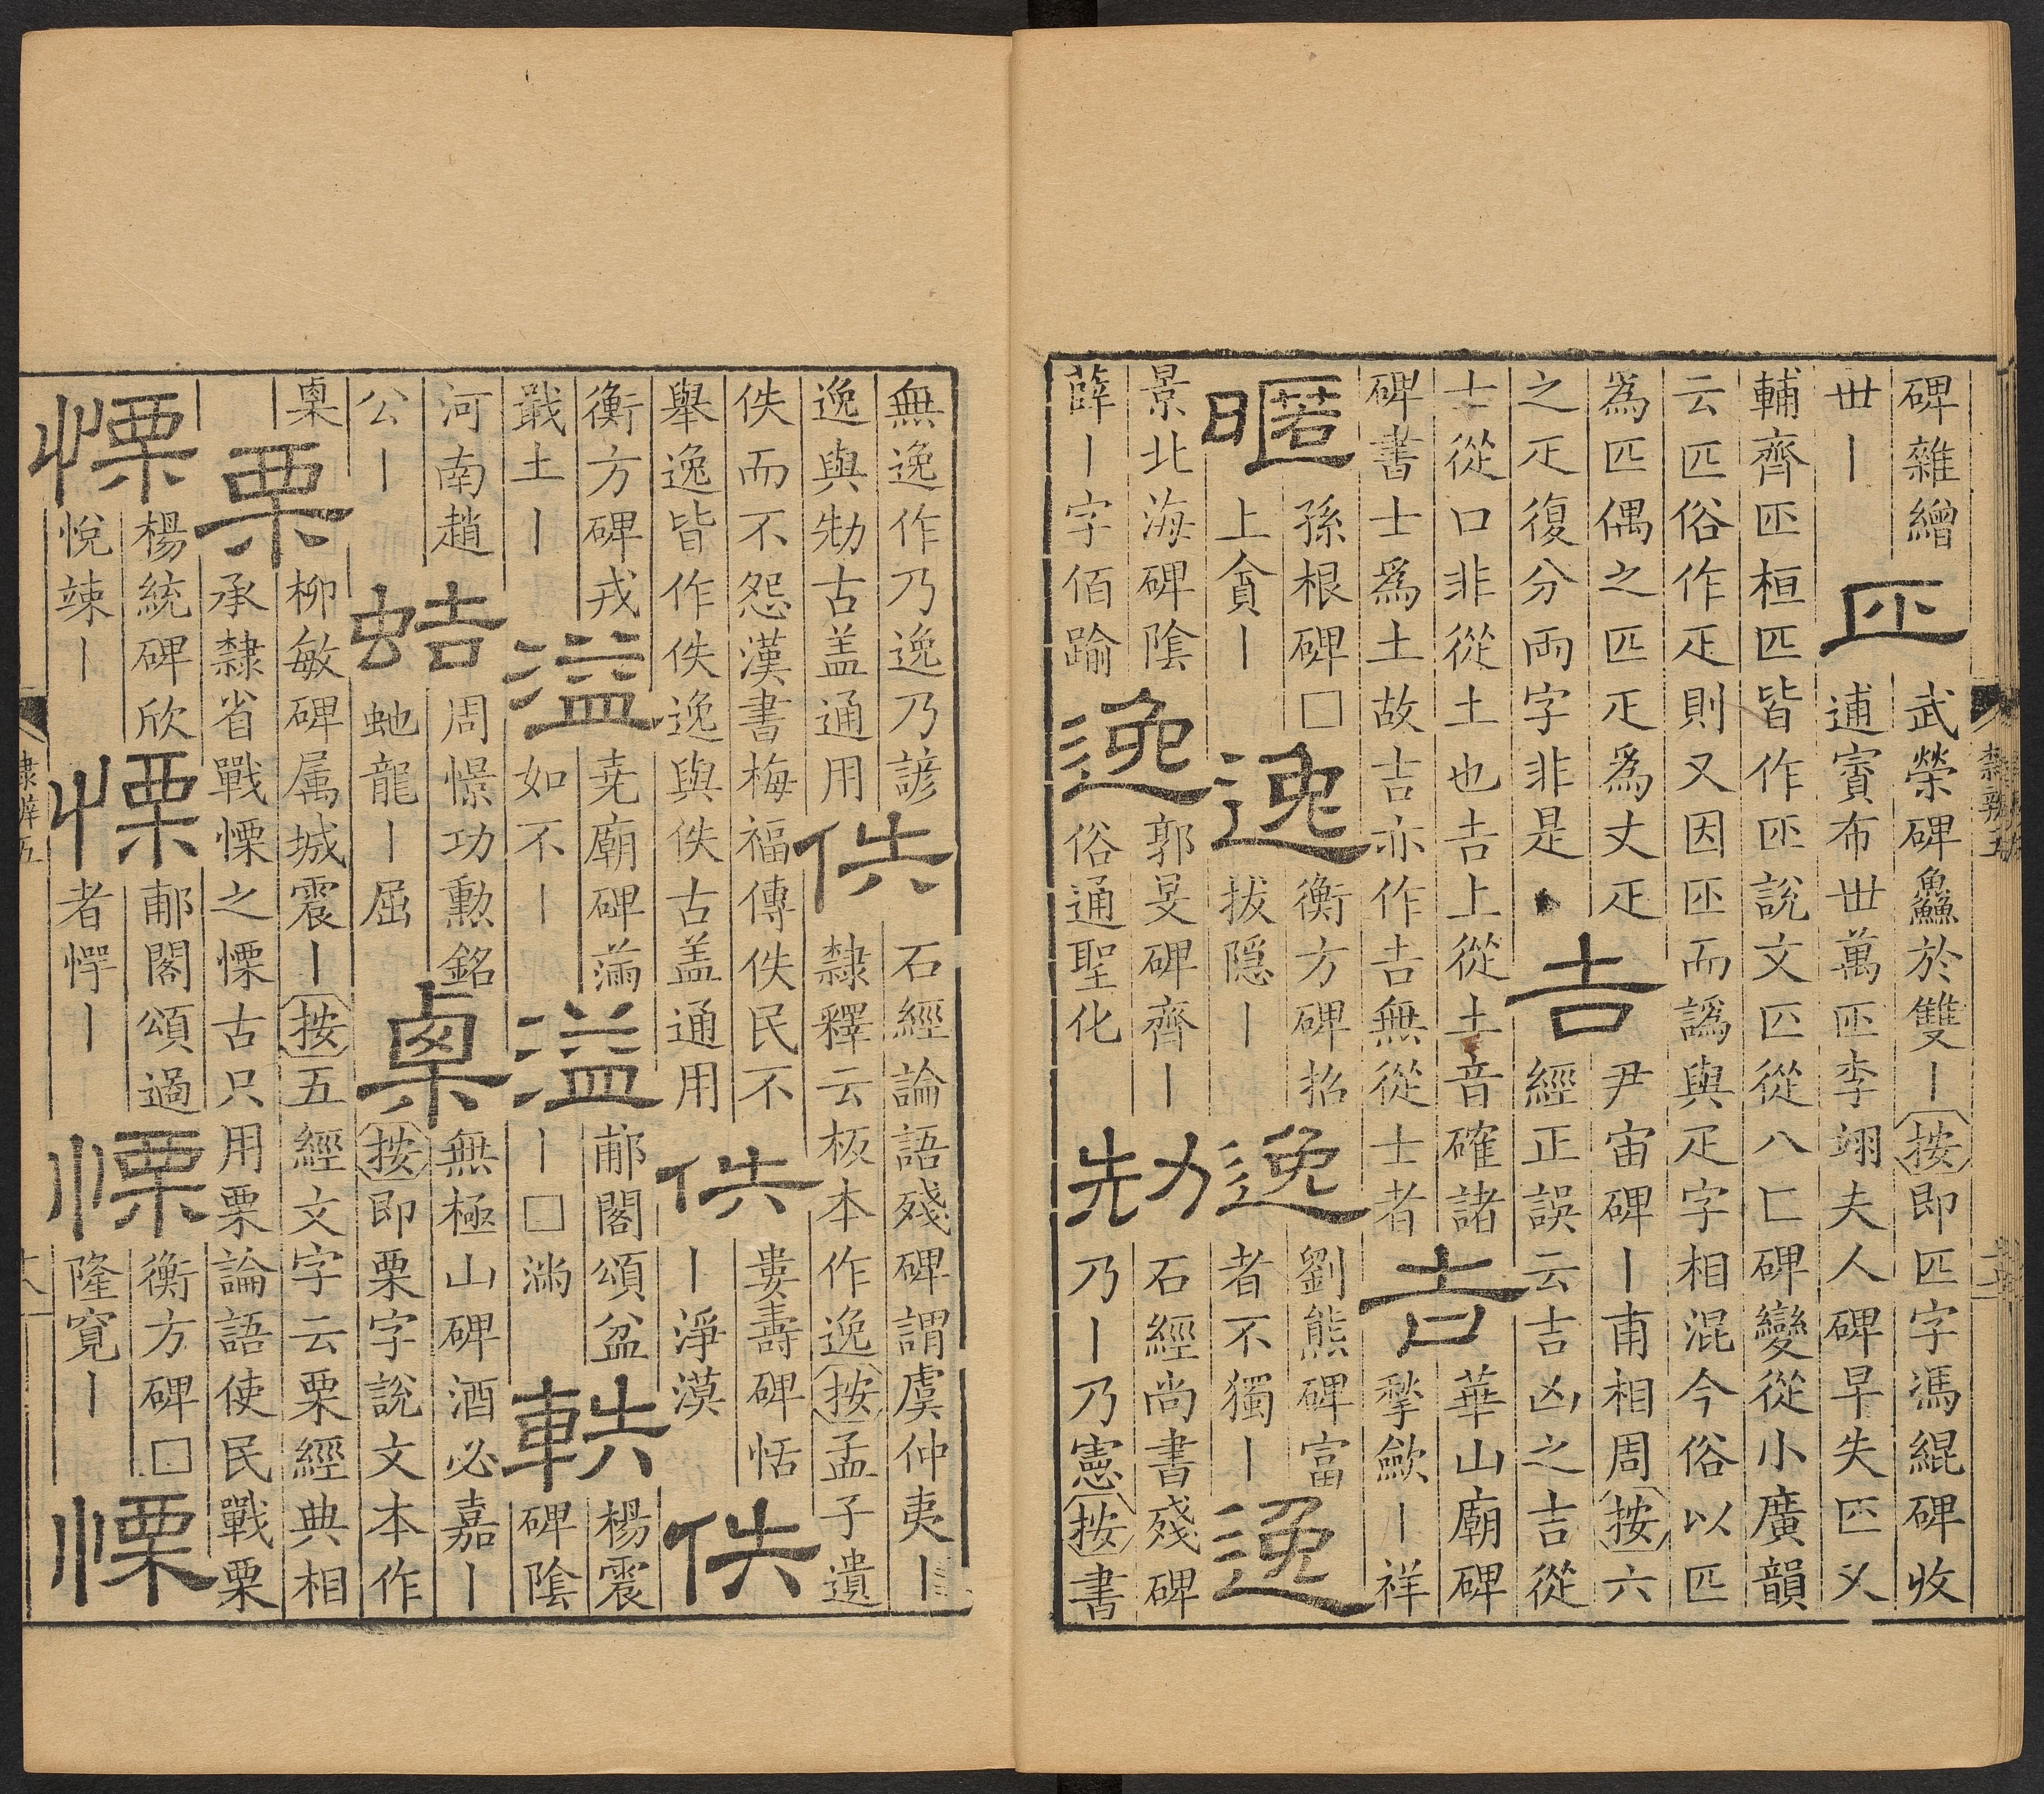 碑雜繒
丗丨
匹
武榮碑鱻於雙丨按即匹字馮緄碑收
逋賨布丗萬匹李翊夫人碑早失匹乂
輔齊匹桓匹皆作匹說文匹從八匚碑變從小廣韻
云匹俗作疋則又因匹而譌與疋字相混今俗以匹
為匹偶之匹疋爲丈疋
之疋復分兩字非是
吉
尹宙碑丨甫相周按六
經正誤云吉凶之吉從
士從口非從土也𠮷上從土音確諸
碑書士爲土故吉亦作𠮷無從士者
吉
華山廟碑
孷歛丨祥
暱
孫根碑□
上貪丨
逸
衡方碑招
拔隱丨
逸
劉熊碑富
者不獨丨
逸
景北海碑陰
薛丨字佰踰
逸
郭旻碑齊丨
俗通聖化
劮
石經尚書殘碑
乃丨乃憲按書
隸辨五
無逸作乃逸乃諺
逸與劮古盖通用
佚
石經論語殘碑謂虞仲夷丨
隸釋云板本作逸按孟子遺
佚而不怨漢書梅福傳佚民不
舉逸皆作佚逸與佚古盖通用
佚
婁壽碑恬
丨淨漠
佚
衡方碑戎
戢土丨
溢
尭廟碑滿
如不丨
溢
郙閣頌盆
丨□㵼
軼
楊震
碑陰
河南趙
公丨
蛣
周憬功勲銘
虵龍丨屈
㮚
無極山碑酒必嘉丨
按即栗字說文本作
㮚
栗
柳敏碑属城震丨按五經文字云栗經典相
承隸省戰慄之慄古只用栗論語使民戰栗
慄
楊統碑欣
悅竦丨
慄
郙閣頌過
者愕丨
慄
衡方碑□
隆寬丨
慄
隸辨五
十八